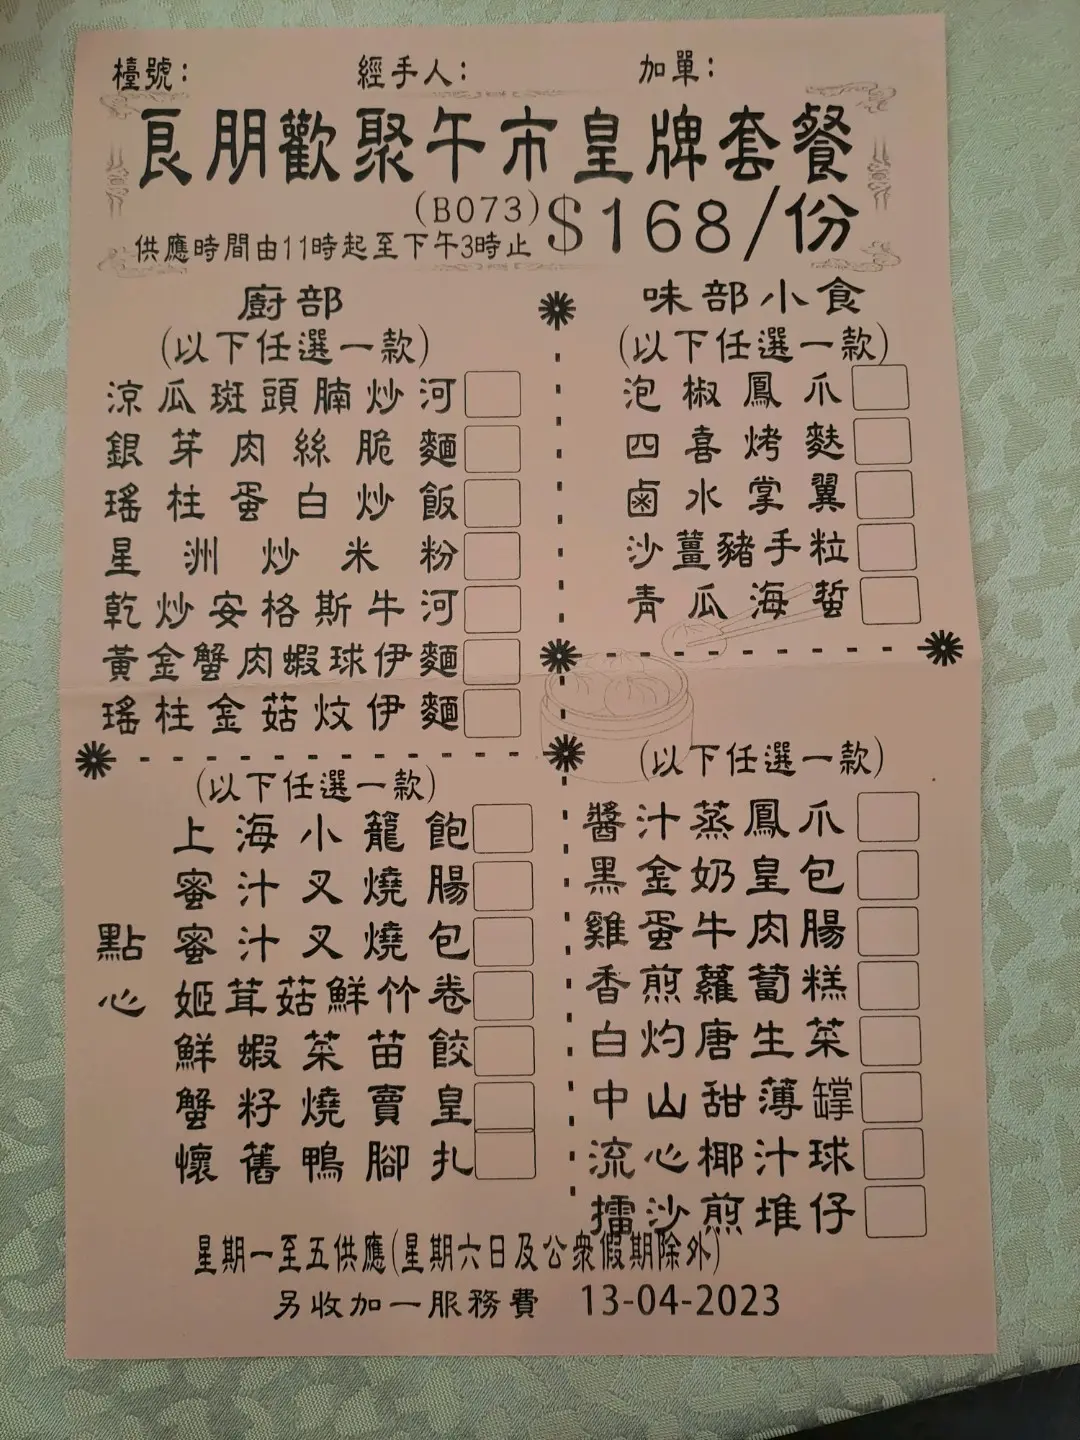 檯號：
經手人：
加單：
良朋歡聚午市皇牌套餐
(B073) $168/份
供應時間由11時起至下午3時止
廚部
(以下任選一款)
涼瓜斑頭腩炒河
銀芽肉絲脆麵
瑤柱蛋白炒飯
星洲炒米粉
乾炒安格斯牛河
黃金蟹肉蝦球伊麵
瑤柱金菇炆伊麵
味部小食
(以下任選一款)
泡椒鳳爪
四喜烤麩
鹵水掌翼
沙薑豬手粒
青瓜海蜇
點心
(以下任選一款)
上海小籠飽
蜜汁叉燒腸
蜜汁叉燒包
姬茸菇鮮竹卷
鮮蝦菜苗餃
蟹籽燒賣皇
懷舊鴨腳扎
(以下任選一款)
醬汁蒸鳳爪
黑金奶皇包
雞蛋牛肉腸
香煎蘿蔔糕
白灼唐生菜
中山甜薄罉
流心椰汁球
擂沙煎堆仔
星期一至五供應(星期六日及公眾假期除外)
另收加一服務費 13-04-2023